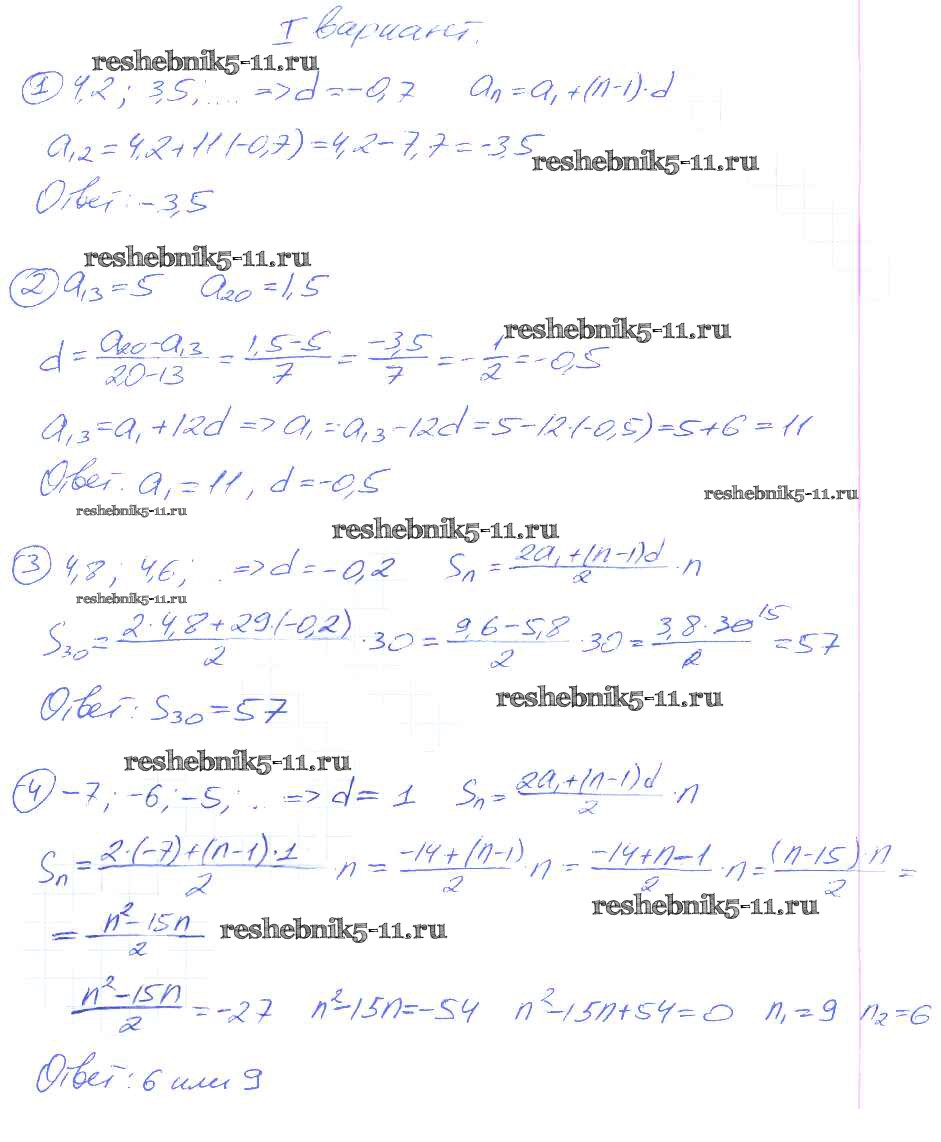 I вариант.
reshebnik5-11.ru
① 4,2; 3,5; .... => d = -0,7 aₙ = a₁ + (n-1)·d
a₁₂ = 4,2 + 11(-0,7) = 4,2 - 7,7 = -3,5
reshebnik5-11.ru
Ответ: -3,5
reshebnik5-11.ru
② a₁₃ = 5 a₂₀ = 1,5
reshebnik5-11.ru
d = (a₂₀ - a₁₃)/(20-13) = (1,5-5)/7 = (-3,5)/7 = -1/2 = -0,5
a₁₃ = a₁ + 12d => a₁ = a₁₃ - 12d = 5 - 12·(-0,5) = 5 + 6 = 11
Ответ. a₁ = 11, d = -0,5
reshebnik5-11.ru
reshebnik5-11.ru
reshebnik5-11.ru
③ 4,8; 4,6; . => d = -0,2 Sₙ = (2a₁ + (n-1)d)/2 · n
reshebnik5-11.ru
S₃₀ = (2·4,8 + 29·(-0,2))/2 · 30 = (9,6 - 5,8)/2 · 30 = (3,8·30)/2 15 = 57
Ответ: S₃₀ = 57
reshebnik5-11.ru
reshebnik5-11.ru
④ -7; -6; -5; . . => d = 1 Sₙ = (2a₁ + (n-1)d)/2 · n
Sₙ = (2·(-7) + (n-1)·1)/2 · n = (-14 + (n-1))/2 · n = (-14 + n - 1)/2 · n = ((n-15)·n)/2 =
reshebnik5-11.ru
= (n² - 15n)/2
reshebnik5-11.ru
(n² - 15n)/2 = -27 n² - 15n = -54 n² - 15n + 54 = 0 n₁ = 9 n₂ = 6
Ответ: 6 или 9